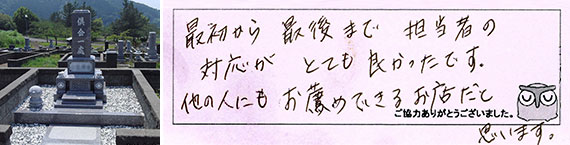 倶会一処
最初から 最後まで 担当者の
対応が とても良かったです。
他の人にも お薦めできるお店だと
ご協力ありがとうございました。
思います。